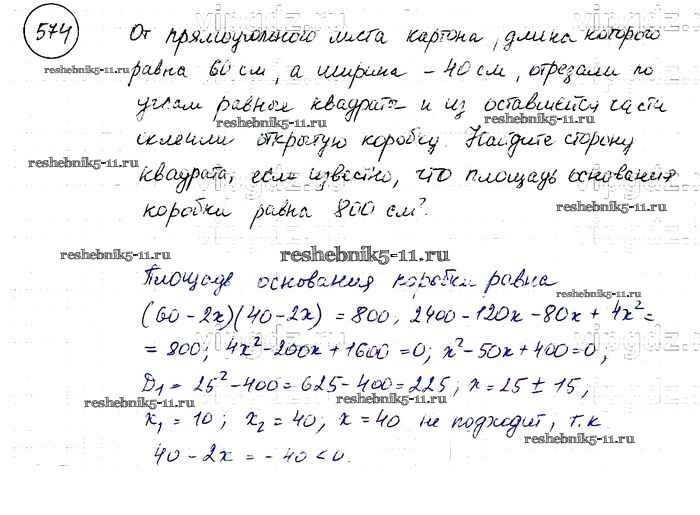 574
От прямоугольного листа картона, длина которого
равна 60 см, а ширина – 40 см, отрезали по
углам равные квадраты и из оставшейся части
склеили открытую коробку. Найдите сторону
квадрата, если известно, что площадь основания
коробки равна 800 см².
Площадь основания коробки равна
(60 - 2x)(40 - 2x) = 800, 2400 - 120x - 80x + 4x² =
= 800; 4x² - 200x + 1600 = 0; x² - 50x + 400 = 0,
D₁ = 25² - 400 = 625 - 400 = 225; x = 25 ± 15,
x₁ = 10; x₂ = 40, x = 40 не подходит, т.к
40 - 2x = - 40 < 0.
reshebnik5-11.ru
reshebnik5-11.ru
reshebnik5-11.ru
reshebnik5-11.ru
reshebnik5-11.ru
reshebnik5-11.ru
reshebnik5-11.ru
reshebnik5-11.ru
reshebnik5-11.ru
reshebnik5-11.ru
reshebnik5-11.ru